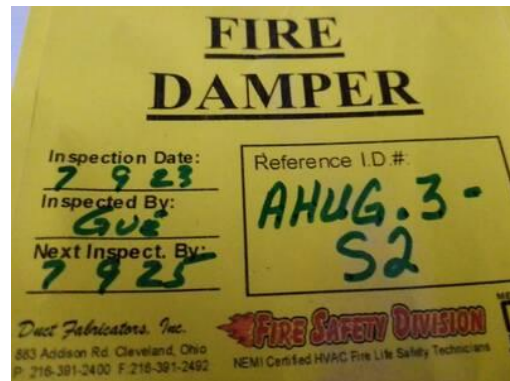 FIRE
DAMPER
Inspection Date:
7 9 23
Inspected By:
Gué
Next Inspect. By:
7 9 25
Reference I.D.#:
AHUG.3-
S2
Duct Fabricators, Inc.
883 Addison Rd. Cleveland, Ohio
P: 216-391-2400 F:216-391-2492
FIRE SAFETY DIVISION
NEMI Certified HVAC Fire Life Safety Technicians